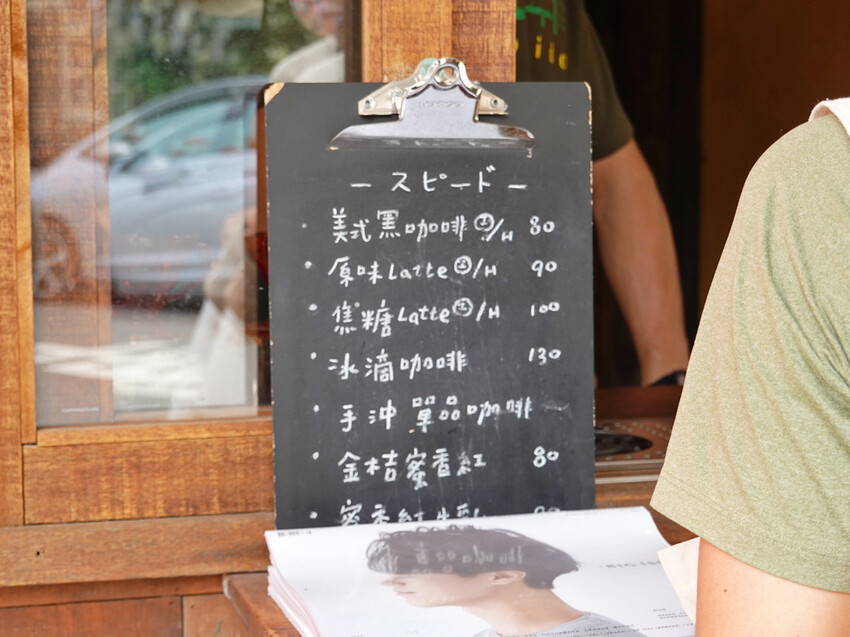 - スピード -
・美式黑咖啡 /H 80
・原味Latte /H 90
・焦糖Latte /H 100
・冰滴咖啡 130
・手沖 單品咖啡
・金桔蜜香紅 80
・蜜香紅牛乳